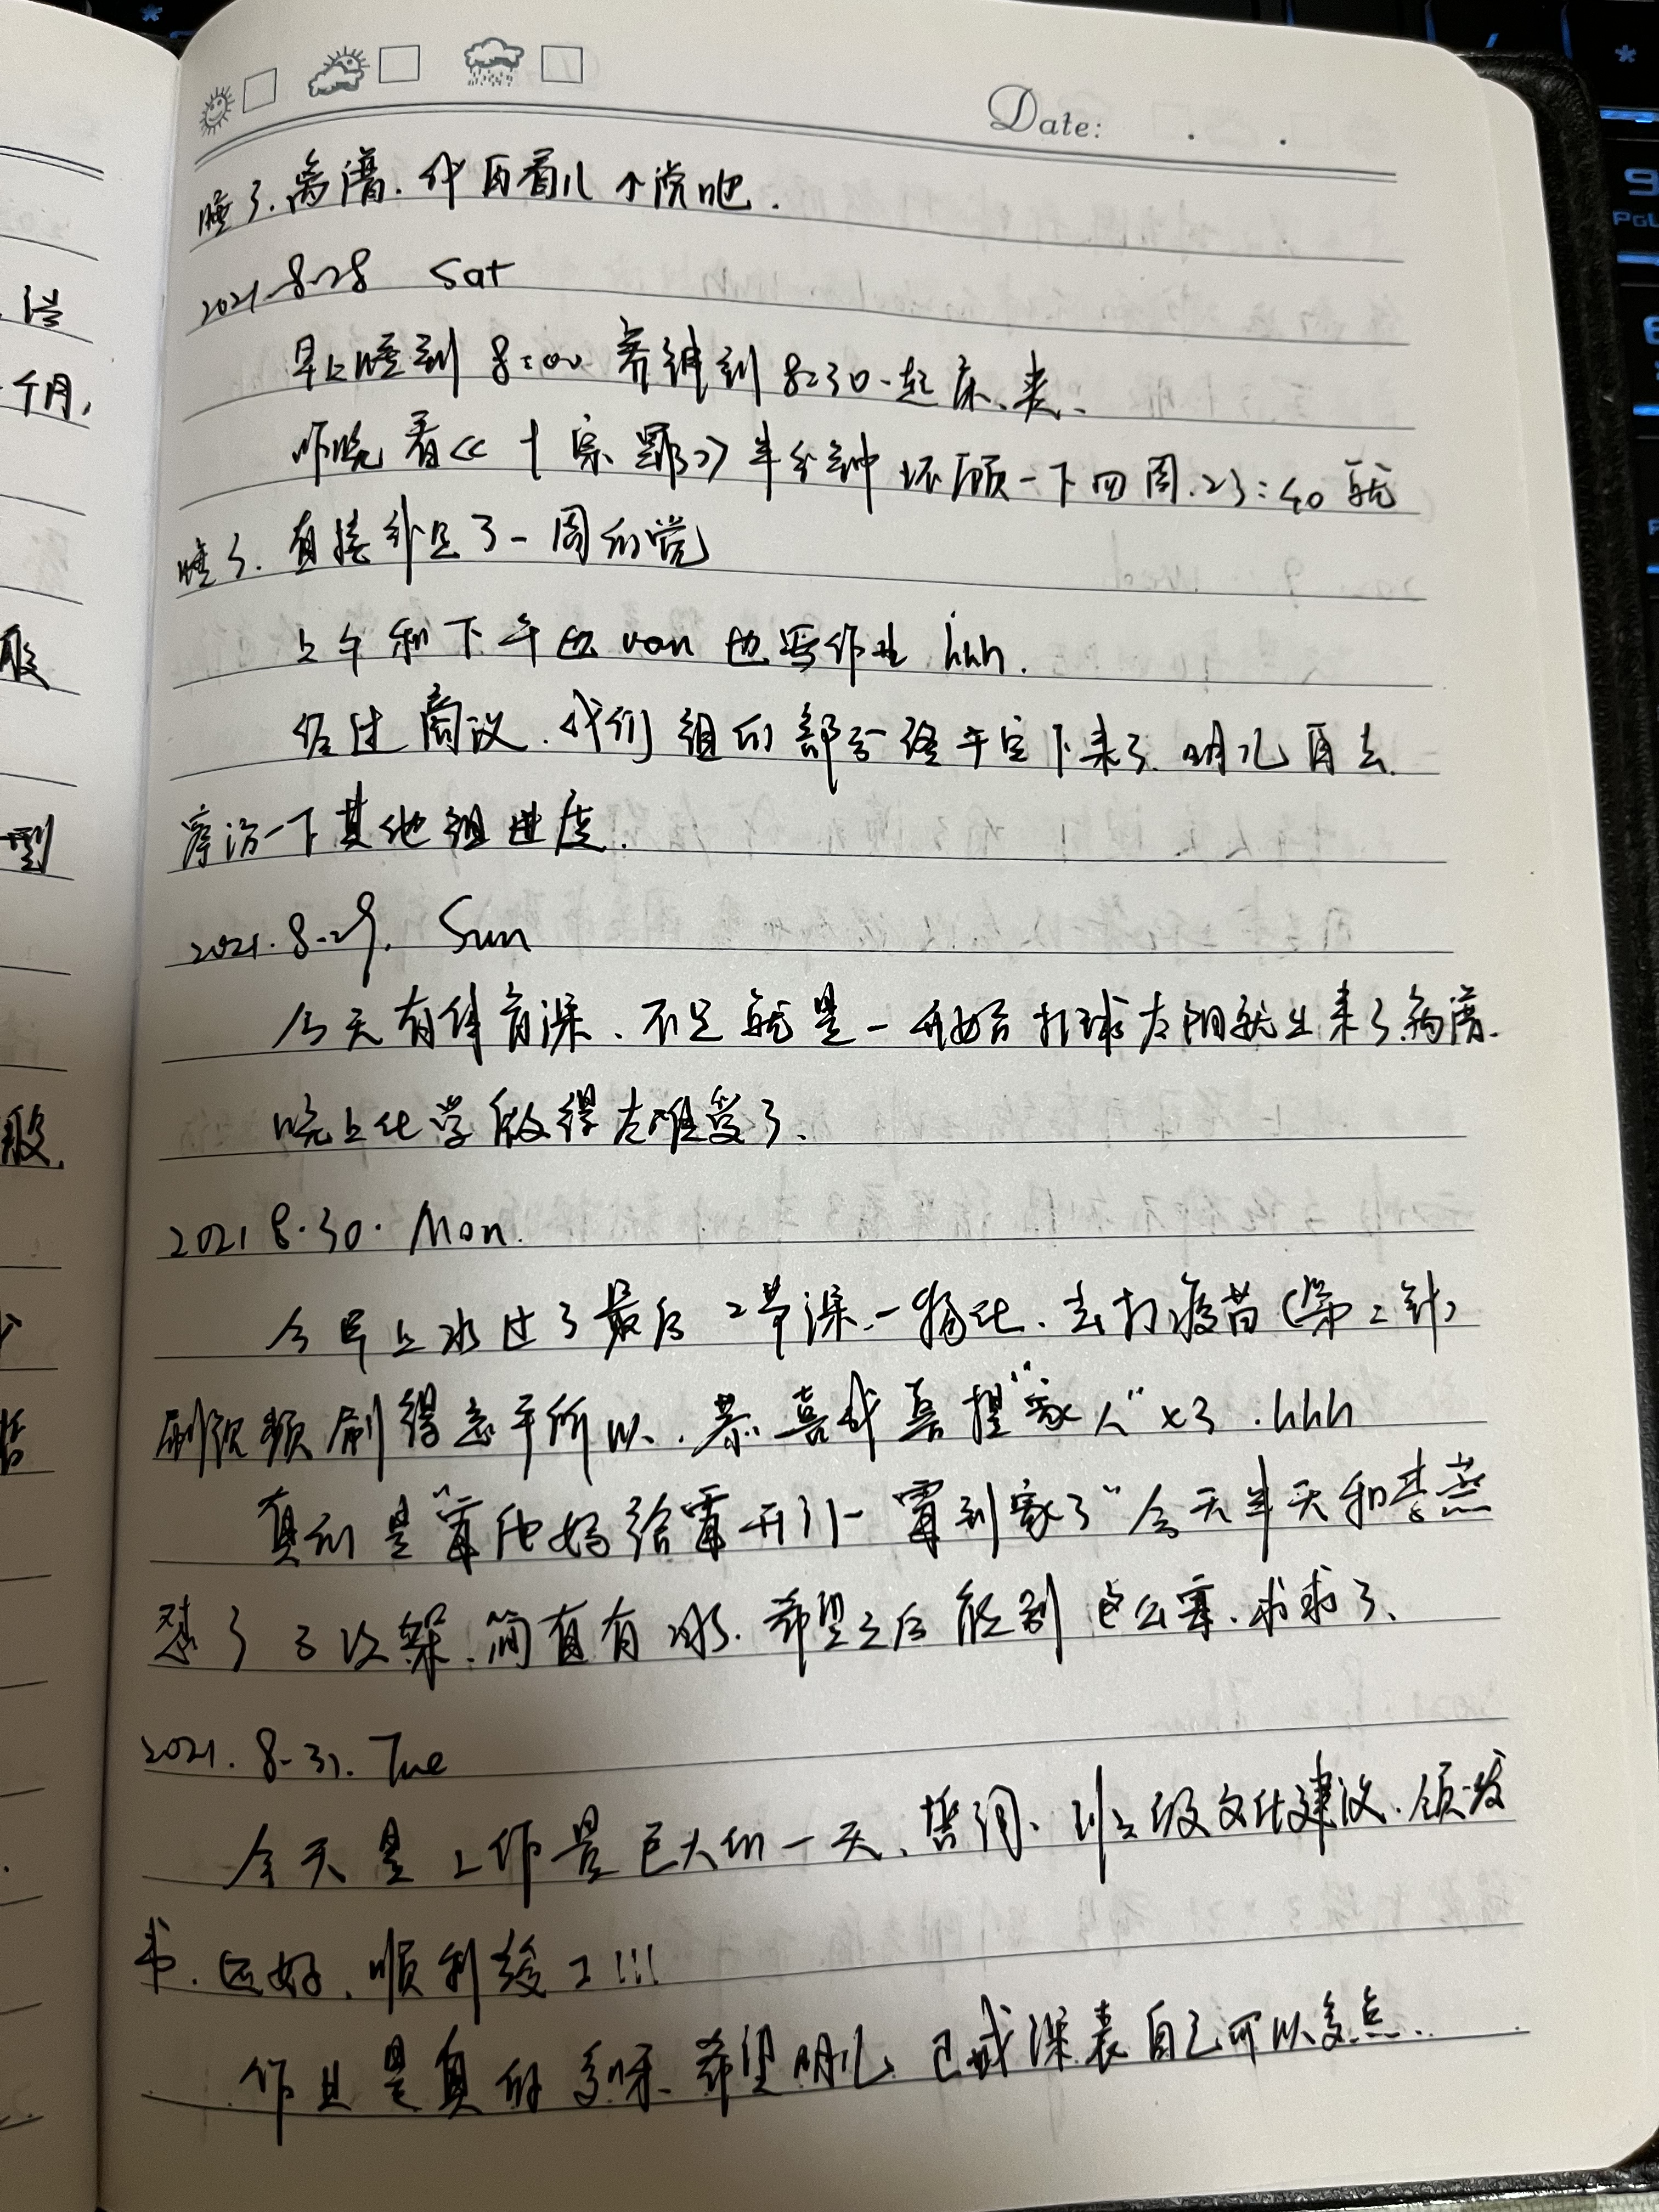 Date:
睡了.离谱.再看几个说吧.
2021.8.28 Sat
早上睡到8:00 赛到8:30.起床.
昨晚看《十宗罪》半分钟环顾一下四周.23:40就
睡了.直接补足了一周的觉
上午和下午也van也写作业hhh.
经过商议.我们组的部分终于定下来了.明儿再去
探访一下其他组进度.
2021.8.29. Sun
今天有体育课、不足就是一开始打球太阳就出来了.离谱.
晚上化学做得太难受了.
2021 8.30. Mon.
今早上水过了最后2节课.-物化、去打疫苗(第二针)
刷视频刷得忘乎所以.恭喜我喜提"家人"×3.hhh
真的是"霉他妈给霉开门-霉到家了"今天半天和李燕
怼了3次架.简直有.希望之后能别这么寄.求求了.
2021.8.31. Tue
今天是工作量巨大的一天、班级文化建设.领发
书.还好.顺利竣工!!!
作业是真的多呀、希望明儿课表自己可以多点.
个月,
型